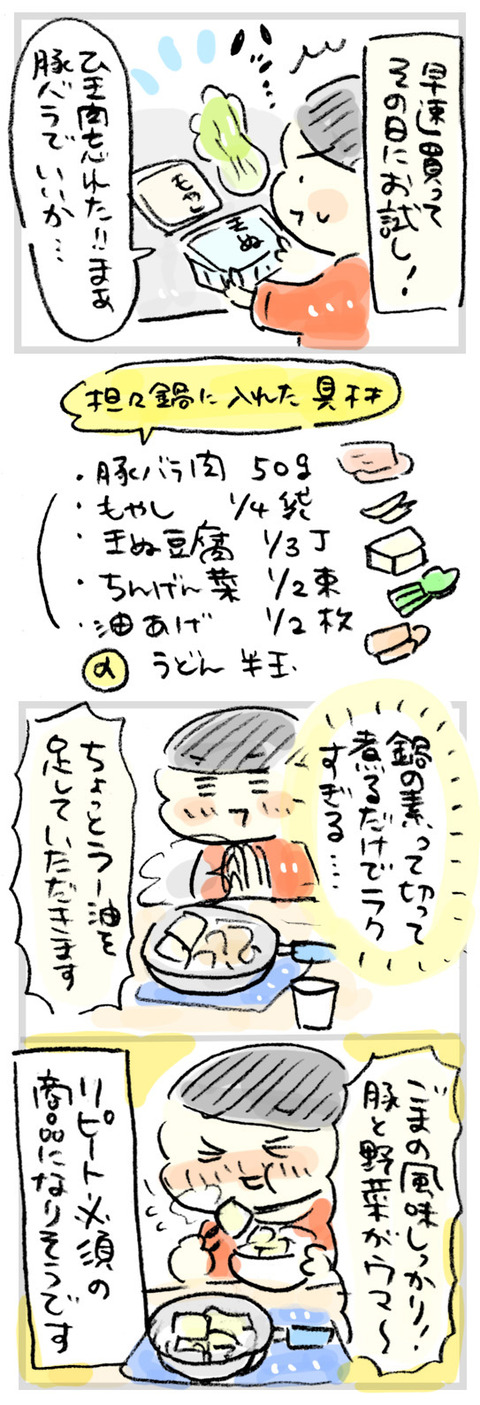 早速買って
その日にお試し!
ひき肉忘れた!!まぁ
豚バラでいいか…
もやし
きぬ
担々鍋に入れた具材
・豚バラ肉 50g
・もやし 1/4袋
・きぬ豆腐 1/3丁
・ちんげん菜 1/2束
・油あげ 1/2枚
α うどん半玉
鍋の素、って切って
煮るだけでラク
すぎる…
ちょっとラー油を
足していただきます
ごまの風味しっかり!
豚と野菜がウマ〜
リピート必須の
商品になりそうです